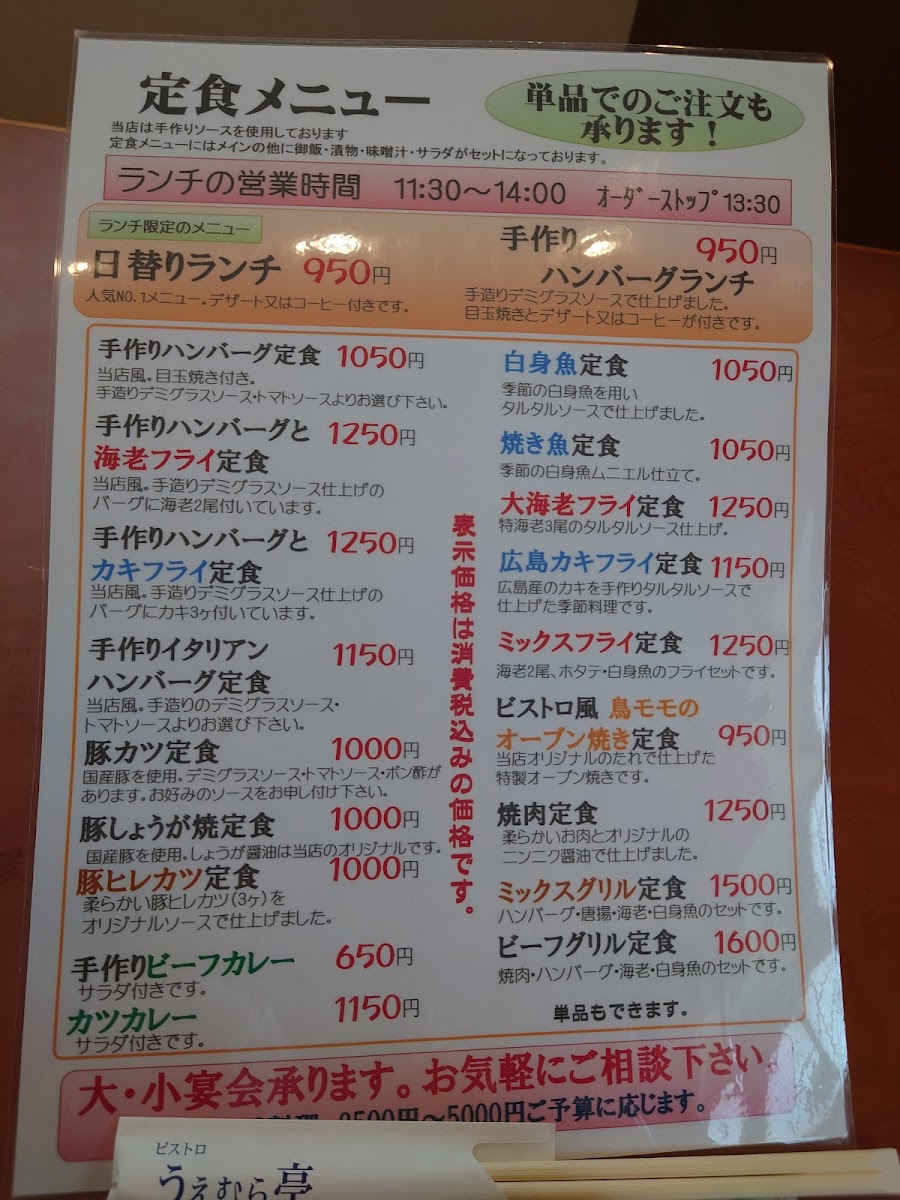 定食メニュー
単品でのご注文も
承ります！
当店は手作りソースを使用しております
定食メニューにはメインの他に御飯・漬物・味噌汁・サラダがセットになっております。
ランチの営業時間 11:30～14:00 オーダーストップ13:30
ランチ限定のメニュー
日替りランチ 950円
人気NO.1メニュー。デザート又はコーヒー付きです。
手作り 950円
ハンバーグランチ
手造りデミグラスソースで仕上げました。
目玉焼きとデザート又はコーヒーが付きです。
手作りハンバーグ定食 1050円
当店風。目玉焼き付き。
手造りデミグラスソース・トマトソースよりお選び下さい。
手作りハンバーグと 1250円
海老フライ定食
当店風。手造りデミグラスソース仕上げの
バーグに海老2尾付いています。
手作りハンバーグと 1250円
カキフライ定食
当店風。手造りデミグラスソース仕上げの
バーグにカキ3ヶ付いています。
手作りイタリアン 1150円
ハンバーグ定食
当店風。手造りのデミグラスソース・
トマトソースよりお選び下さい。
豚カツ定食 1000円
国産豚を使用。デミグラスソース・トマトソース・ポン酢が
あります。お好みのソースをお申し付け下さい。
豚しょうが焼定食 1000円
国産豚を使用。しょうが醤油は当店のオリジナルです。
豚ヒレカツ定食 1000円
柔らかい豚ヒレカツ（3ヶ）を
オリジナルソースで仕上げました。
手作りビーフカレー 650円
サラダ付きです。
カツカレー 1150円
サラダ付きです。
表示価格は消費税込みの価格です。
白身魚定食 1050円
季節の白身魚を用い
タルタルソースで仕上げました。
焼き魚定食 1050円
季節の白身魚ムニエル仕立て。
大海老フライ定食 1250円
特海老3尾のタルタルソース仕上げ。
広島カキフライ定食 1150円
広島産のカキを手作りタルタルソースで
仕上げた季節料理です。
ミックスフライ定食 1250円
海老2尾、ホタテ・白身魚のフライセットです。
ビストロ風 鳥モモの
オーブン焼き定食 950円
当店オリジナルのたれで仕上げた
特製オーブン焼きです。
焼肉定食 1250円
柔らかいお肉とオリジナルの
ニンニク醤油で仕上げました。
ミックスグリル定食 1500円
ハンバーグ・唐揚・海老・白身魚のセットです。
ビーフグリル定食 1600円
焼肉・ハンバーグ・海老・白身魚のセットです。
単品もできます。
大・小宴会承ります。お気軽にご相談下さい。
料理 3500円～5000円ご予算に応じます。
ビストロ
うえむら亭